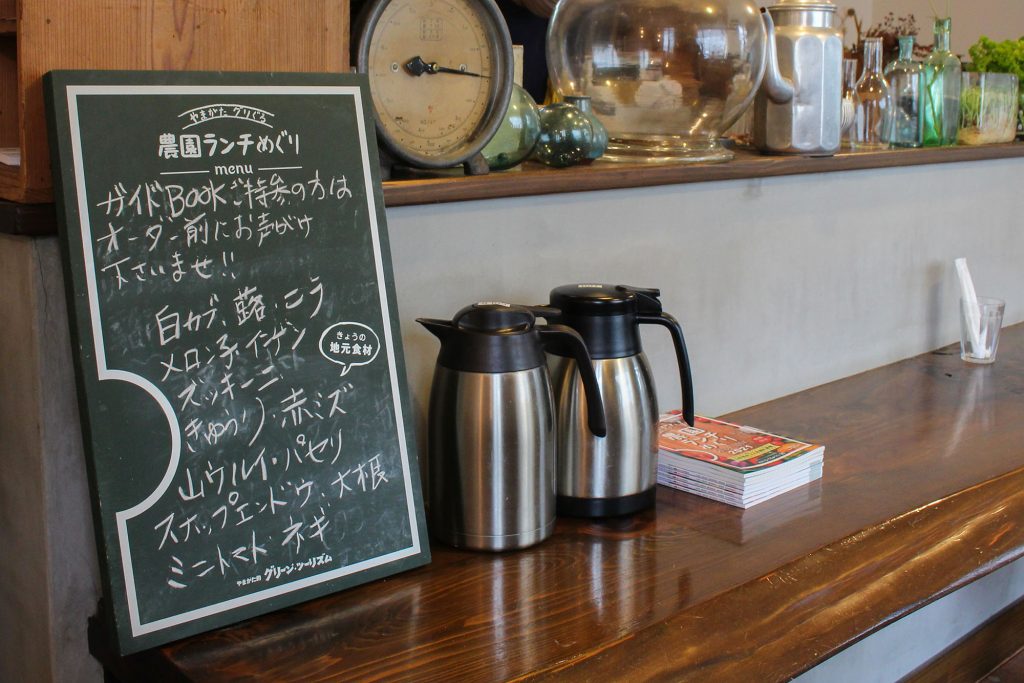 やまがた グリぐる
農園ランチめぐり
menu
ガイドBOOKご持参の方は
オーダー前にお声がけ
下さいませ!!
白カブ、蕗・ニラ
メロン子・インゲン
きょうの
地元食材
ズッキーニ
きゅうり、赤ミズ
山ウルイ・パセリ
スナップエンドウ、大根
ミニトマト ネギ
やまがた的 グリーン・ツーリズム
2021